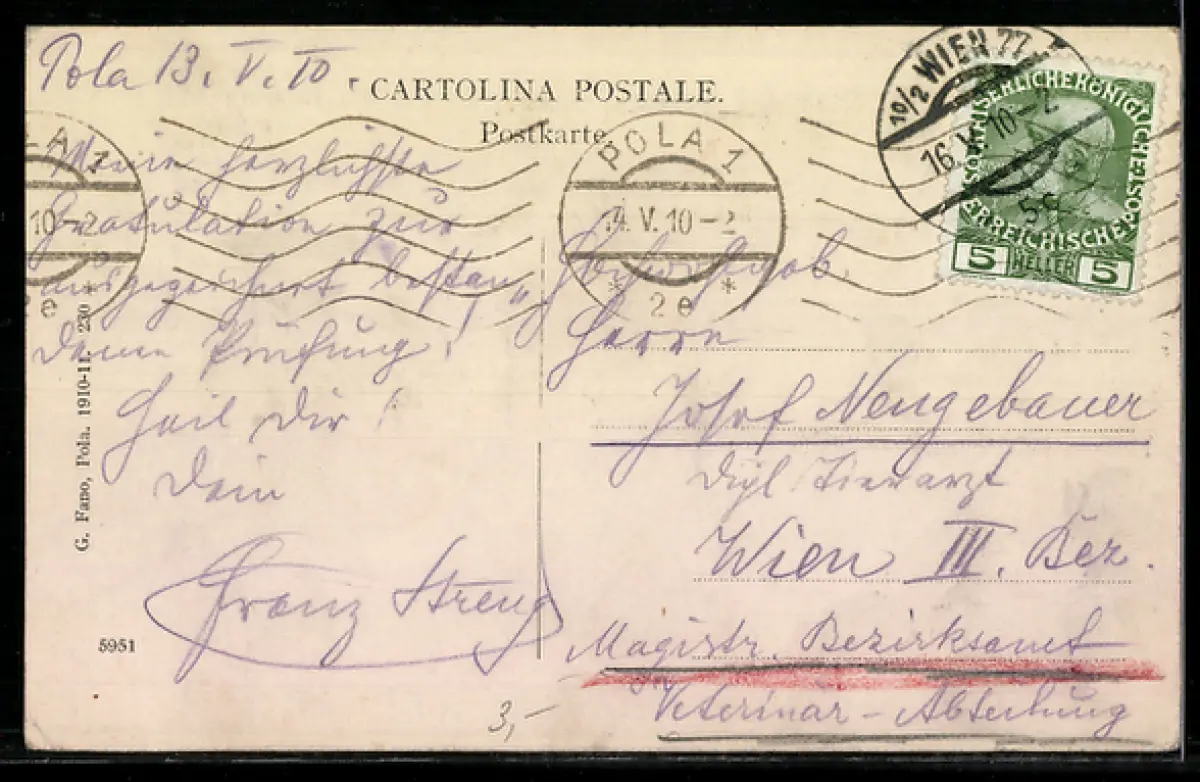 Pola 13. V. 10.
CARTOLINA POSTALE.
Postkarte
Meine herzlichste
Gratulation zur
ausgezeichnet bestan„
denen Prüfung!
Heil Dir!
Dein
Franz Streng
G. Fano, Pola. 1910-11. 230
5951
3,-
LA 1
10-2
e *
POLA 1
14. V. 10-2
* 2e *
10/2 WIEN 77
16. V. 10-2
KAISERLICHE KÖNIGLICHE POST
ÖSTERREICHISCHE
5 HELLER 5
Herrn
Josef Neugebauer
Dipl. Tierarzt
Wien III. Bez.
Magistr. Bezirksamt
Veterinär-Abteilung